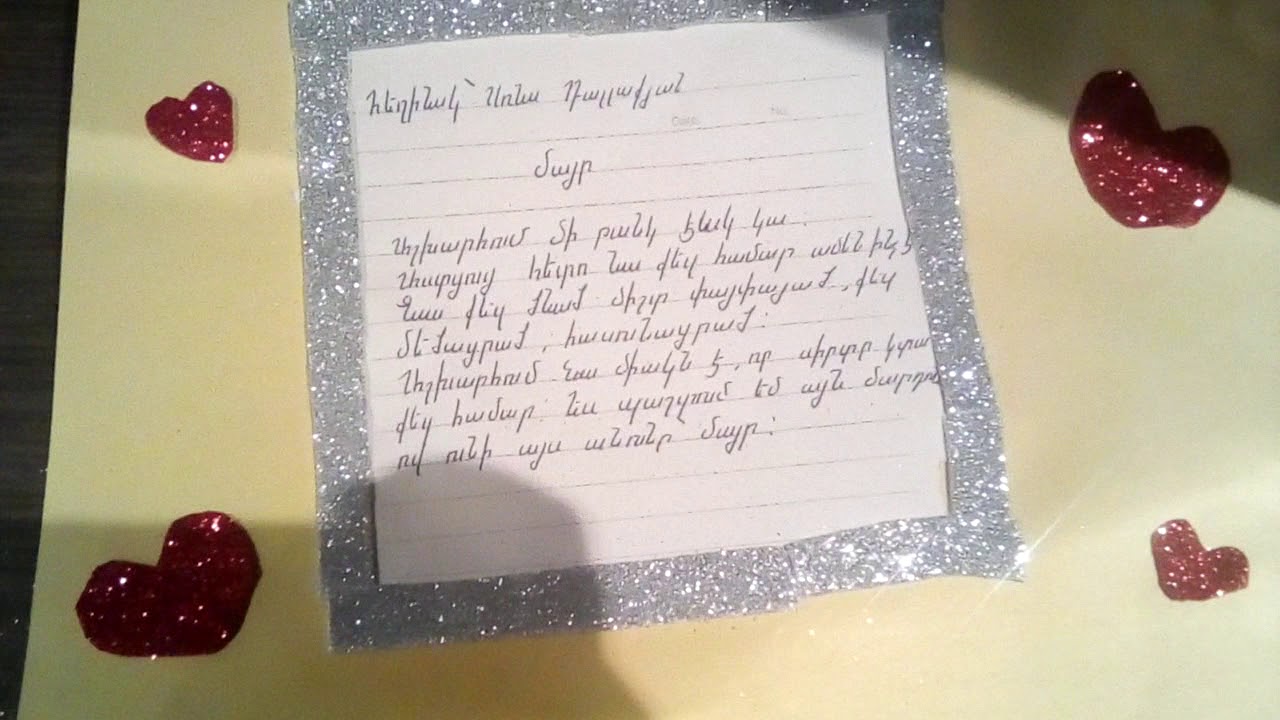 Հեղինակ՝ Աննա Դալլաքյան
Մայր
Աշխարհում մի թանկ էակ կա.
Աստծուց հետո նա մեզ համար ամեն ինչ է
Նա մեզ ծնած միշտ փայփայած, մեզ
մեծացրած, հասունացրած:
Աշխարհում նա միակն է, որ սիրտը կտա
մեզ համար: Ես պաշտում եմ այն մարդուն
ով ունի այս անունը՝ մայր: